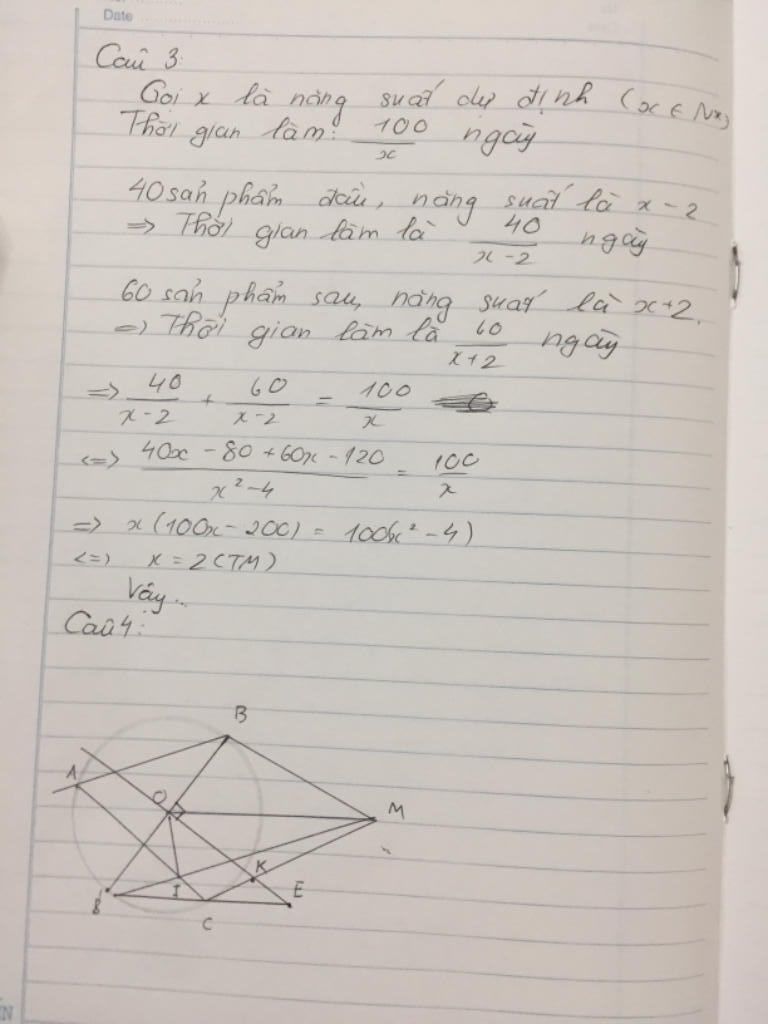 Date
Câu 3:
Gọi x là năng suất dự định (x ∈ N*)
Thời gian làm: 100/x ngày
40 sản phẩm đầu, năng suất là x - 2
=> Thời gian làm là 40/(x-2) ngày
60 sản phẩm sau, năng suất là x+2.
=> Thời gian làm là 60/(x+2) ngày
=> 40/(x-2) + 60/(x-2) = 100/x
<=> (40x - 80 + 60x - 120)/(x² - 4) = 100/x
=> x(100x - 200) = 100(x² - 4)
<=> x = 2 (TM)
Vậy...
Câu 4:
B
A
O
M
K
I
E
B
C